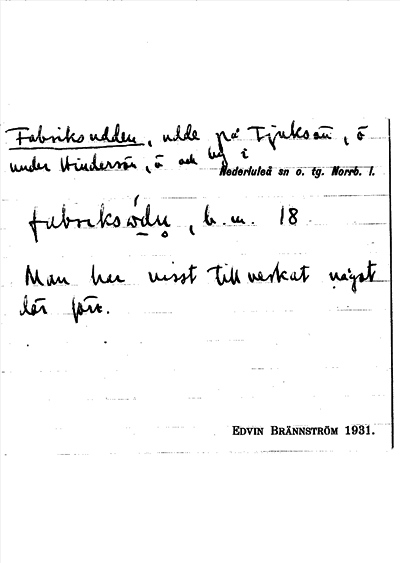 Fabriksudden, udde på Tjuksan, ö
under Hindersön, ö och by i
Nederluleå sn o. tg. Norrb. l.
b. m. 18
Man har visst tillverkat något
där förr.
EDVIN BRÄNNSTRÖM 1931.